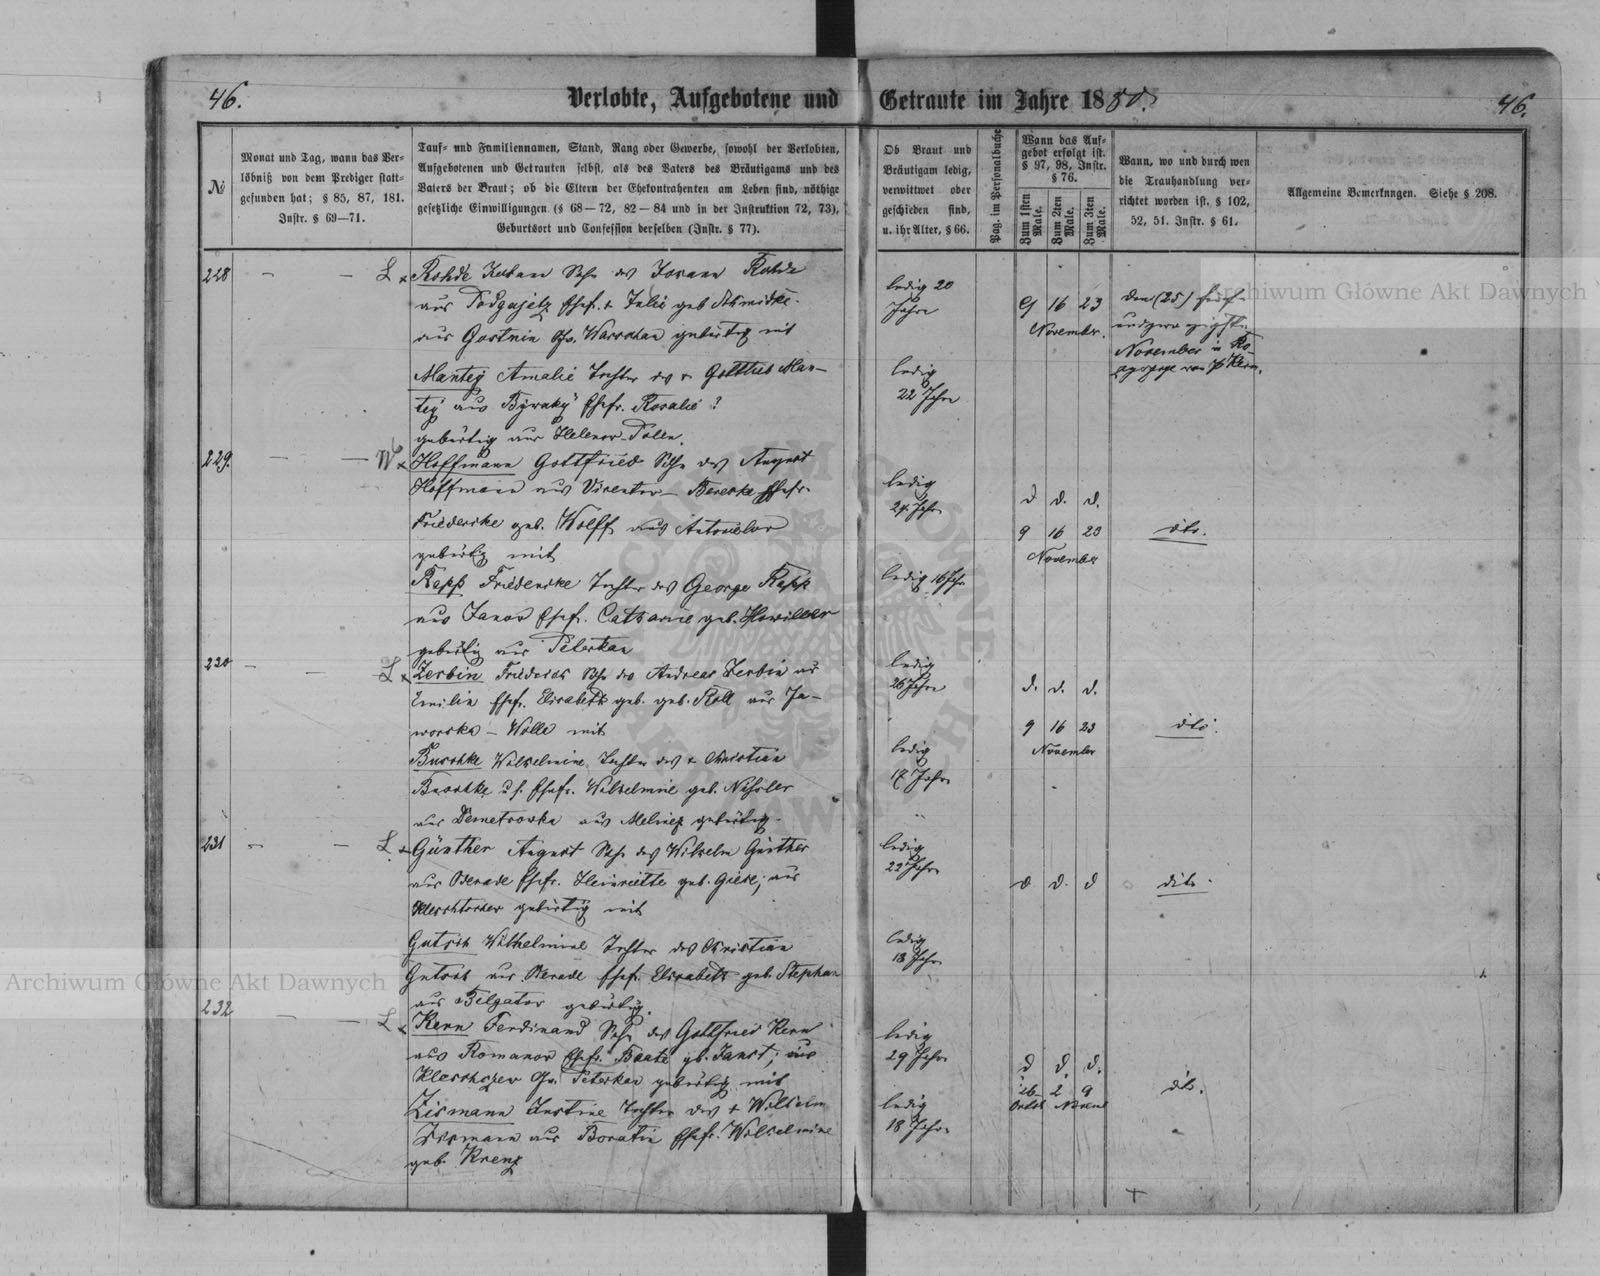 46.
Verlobte, Aufgebotene und Getraute im Jahre 1880.
46.
№
Monat und Tag, wann das Ver-
löbniß von dem Prediger statt-
gefunden hat; § 85, 87, 181.
Instr. § 69—71.
Tauf- und Familiennamen, Stand, Rang oder Gewerbe, sowohl der Verlobten,
Aufgebotenen und Getrauten selbst, als des Vaters des Bräutigams und des
Vaters der Braut; ob die Eltern der Ehekontrahenten am Leben sind, nöthige
gesetzliche Einwilligungen (§ 68—72, 82—84 und in der Instruktion 72, 73),
Geburtsort und Confession derselben (Instr. § 77).
Ob Braut und
Bräutigam ledig,
verwittwet oder
geschieden sind,
u. ihr Alter, § 66.
Pag. im Personalbuche
Wann das Auf-
gebot erfolgt ist.
§ 97, 98, Instr.
§ 76.
Zum 1sten Male.
Zum 2ten Male.
Zum 3ten Male.
Wann, wo und durch wen
die Trauhandlung ver-
richtet worden ist, § 102,
52, 51. Instr. § 61.
Allgemeine Bemerkungen. Siehe § 208.
228 — — L × Rohde Johann Sohn des Johann Rohde
aus Podgajetz Ehefr. + Julie geb. Schmidtke
aus Gostnin Gv. Warschau gebürtig mit
Mantej Amalie Tochter des + Gottlieb Man-
tej aus Ehefr. Rosalie ?
gebürtig aus Helenow-Polen.
ledig 20
Jahre
ledig
22 Jahre
9 16 23
November.
den (25) fünf-
undzwanzigsten
November in Ro-
von P. Kern.
229. — — W × Hoffmann Gottfried Sohn des August
Hoffmann aus Ehefr.
Friedericke geb. Wolff aus
gebürtig mit
Rapp Friedericke Tochter des George Rapp
aus Janow Ehefr. Catharine geb.
gebürtig aus
ledig
Jahre
ledig 16 Jahr
d d. d.
9 16 23
November
dito.
230 — — L × Zerbin Friedrich Sohn des Andreas Zerbin aus
Emilin Ehefr. Elisabeth geb. geb. Roll aus Ja-
worska – Wolle mit
Buschke Wilhelmine Tochter des + Christian
Buschke u. s. Ehefr. Wilhelmine geb.
aus Demetrowka aus gebürtig.
ledig
26 Jahre
ledig
17 Jahre
d. d. d.
9 16 23
November
dito.
231 — — L × Günther August Sohn des Wilhelm Günther
aus Ehefr. Henriette geb. Giese, aus
gebürtig mit
Gutsch Wilhelmine Tochter des Christian
Gutsch aus Ehefr. Elisabeth geb. Stephan
aus gebürtig.
ledig
22 Jahre
ledig
18 Jahre
d d. d
dito.
232 — — L × Kern Ferdinand Sohn des Gottfried Kern
aus Romanow Ehefr. Beate gb. aus
gebürtig mit
Zismann Justine Tochter des + Wilhelm
Zismann aus Boratin Ehefr. Wilhelmine
geb. Krenz
ledig
29 Jahre
ledig
18 Jahre
d d. d.
26 2 9
dito.
Archiwum Główne Akt Dawnych
Archiwum Główne Akt Dawnych